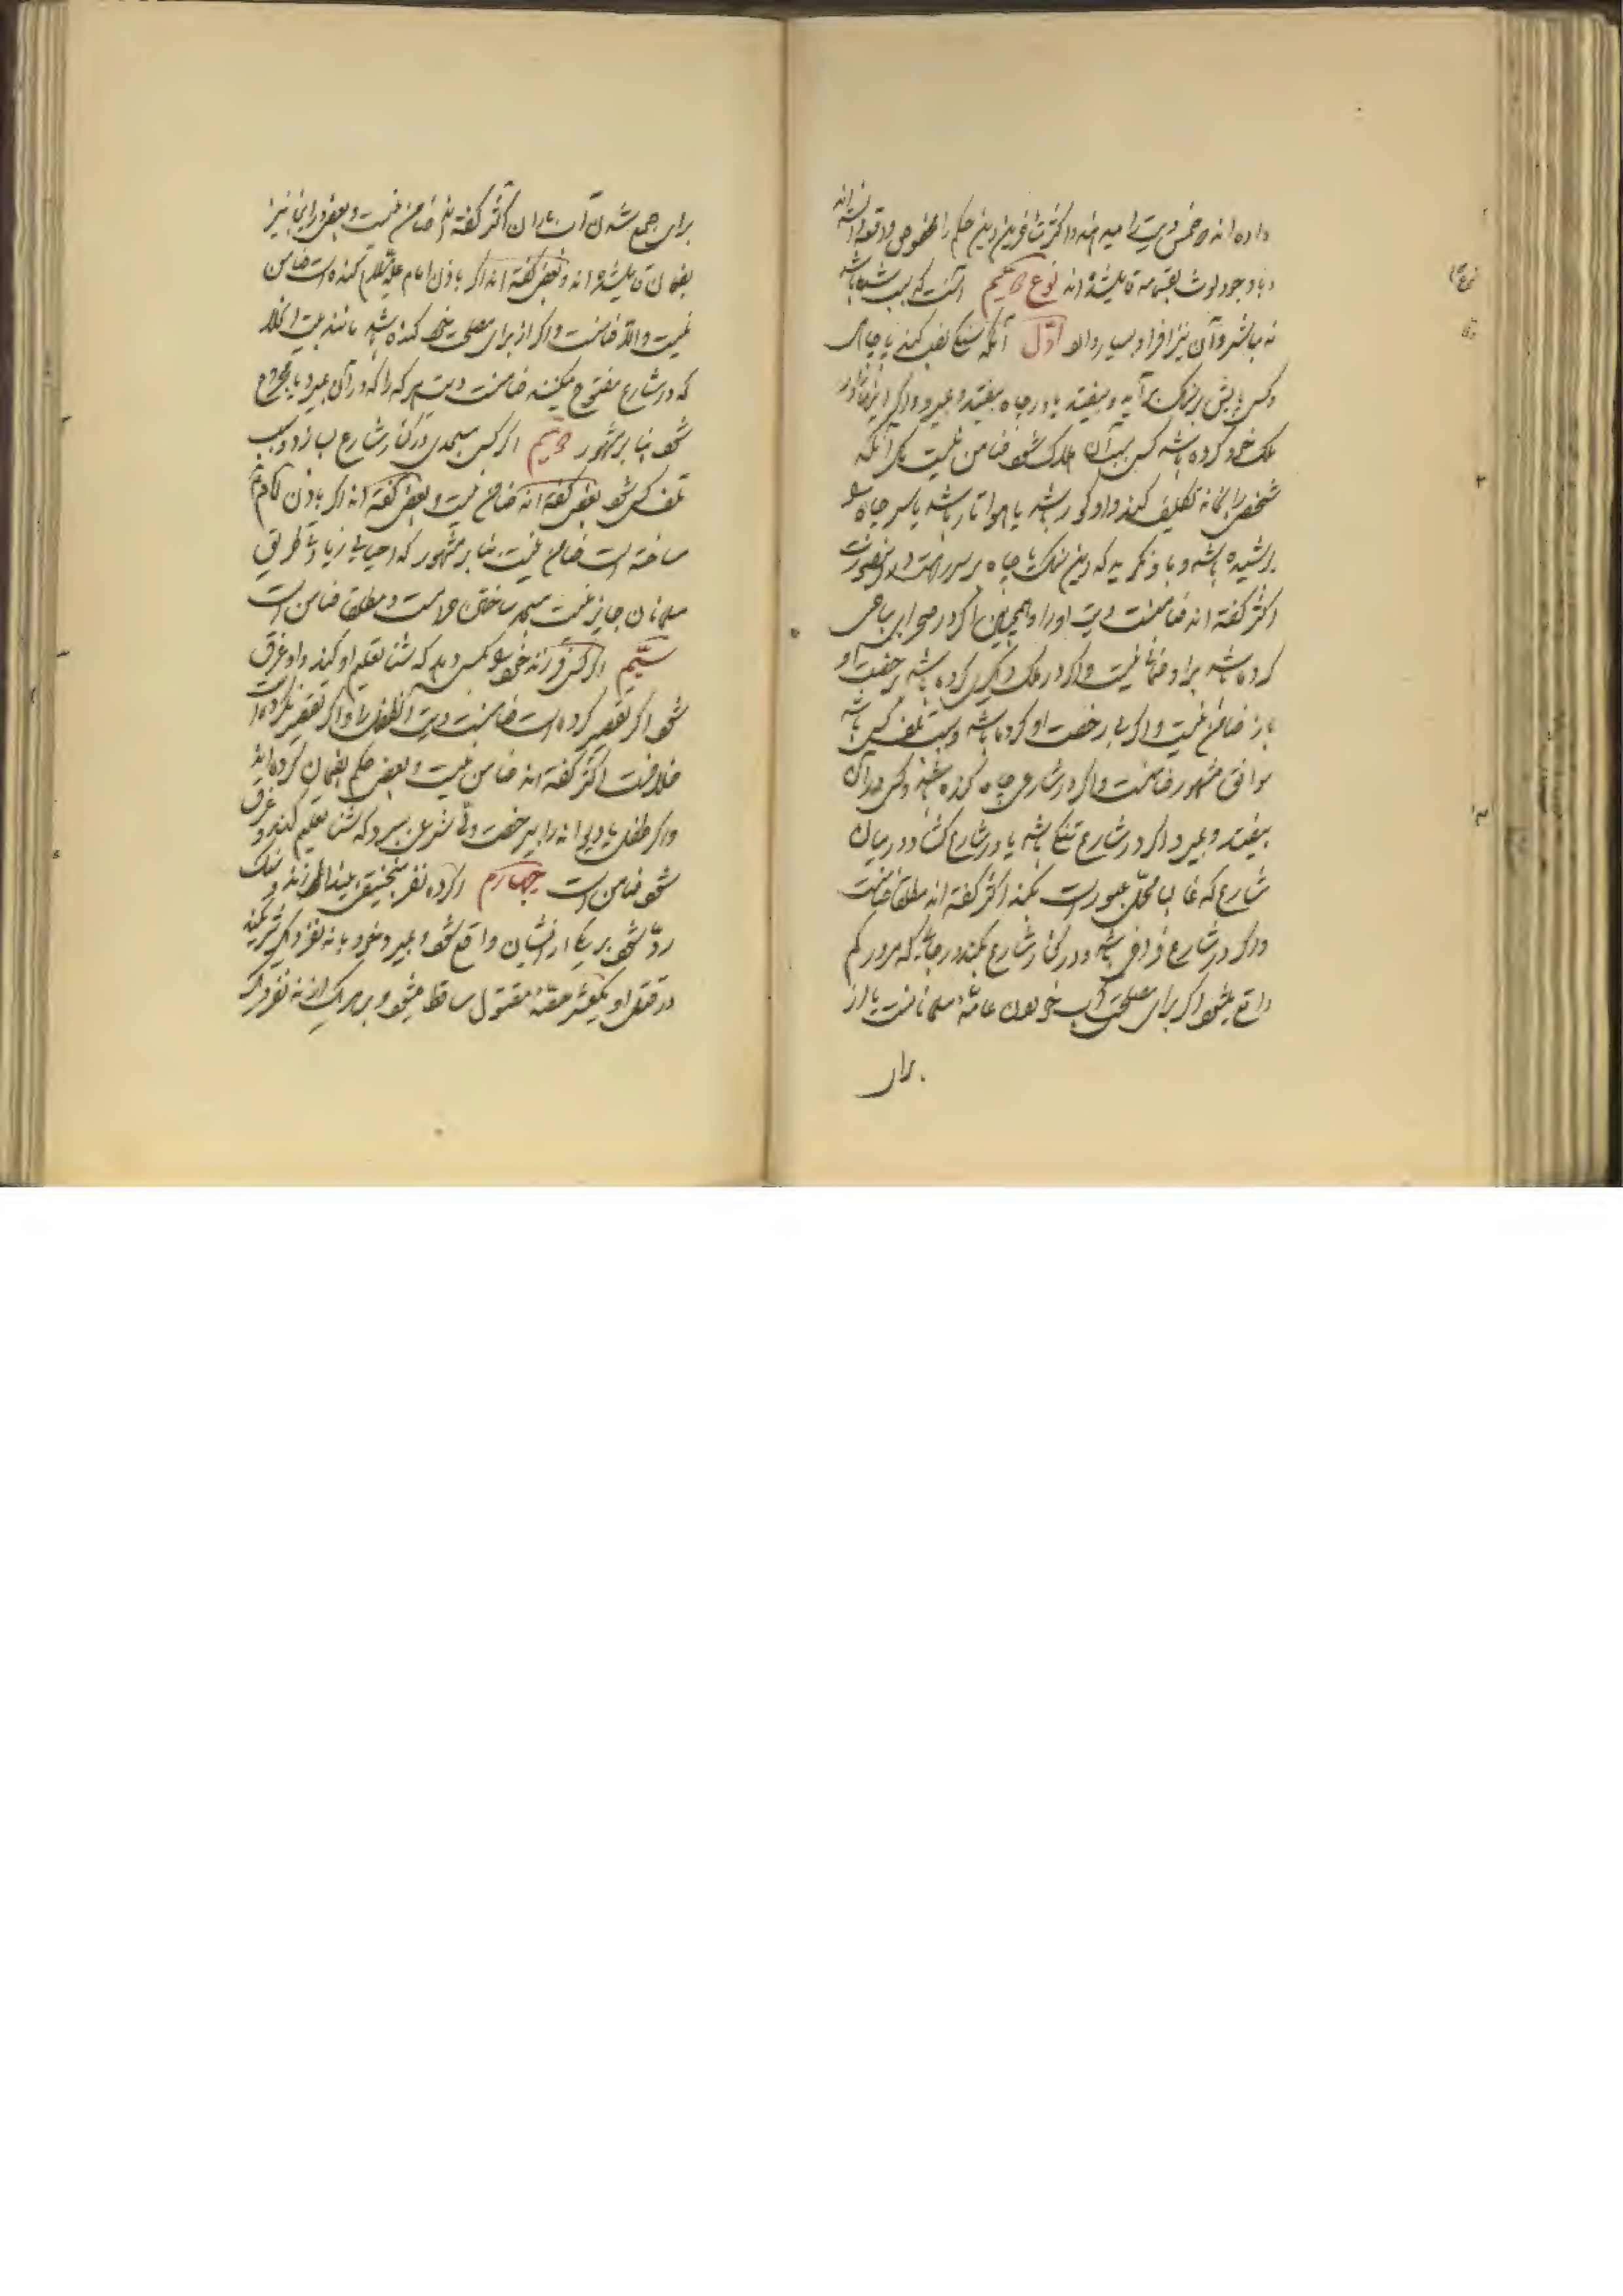 داده اند و خمس دیت را میدهند و اکثر متأخرین این حکم را مخصوص
و با وجود لوث بقسامه قایل شده اند نوع دویم آنست که سبب شده باشد
نه مباشر و آن نیز افراد بسیار دارد اوّل آنکه سنگی نصب کند یا چاهی
و کسی پایش بر سنگ برآید و بیفتد یا در چاه بیفتد و بمیرد و اگر اینها را در
ملک خود کرده باشد و کسی بسبب آن هلاک شود ضامن نیست مگر آنکه
شخصی را بخانه تکلیف کند و او کور باشد یا هوا تار باشد یا سر چاه را
پوشیده باشد و باو نگوید که این سنگ یا چاه بر سر راهست در این صورت
اکثر گفته اند ضامنست دیت او را و همچنین اگر در صحرای مباحی
کرده باشد بر او ضمانی نیست و اگر در ملک دیگری کرده باشد برخصت او
باز ضامن نیست و اگر بی رخصت او کرده باشد و سبب تلف کسی باشد
موافق مشهور ضامنست و اگر در شارعی چاه کنده باشد و کسی در آن
بیفتد و بمیرد اگر در شارع تنگی باشد یا در شارع گشاد و در میان
شارع که غالبا محلّ عبور است بکند اکثر گفته اند مطلقا ضامنست
و اگر در شارع فراخی باشد و در کنار شارع بکند در جائیکه مرور کم
واقع میشود اگر برای مصلحت خود یا عامّهٔ مسلمانانست یا از
برای
برای جمع شدن آب باران اکثر گفته اند ضامن نیست و بعضی در این نیز
بضمان قایل شده اند و بعضی گفته اند اگر باذن امام علیه السلام کنده است ضامن
نیست و الّا ضامنست و اگر از برای مصلحت خود کنده باشد مانند بیت الخلا
که در شارع مفتوح میکنند ضامنست دیت هر که را که در آن بمیرد یا مجروح
شود بنا بر مشهور دویم اگر کسی مسجدی در کنار شارع بسازد و سبب
تلف کسی شود بعضی گفته اند ضامن نیست و بعضی گفته اند اگر باذن امام
ساخته است ضامن نیست بنا بر مشهور که احیای زیادتی طریق
مسلمانان جایز نیست مسجد ساختن حرامست و مطلقا ضامن است
سیّم اگر کسی فرزند خود را بکسی دهد که شنا تعلیم او کند و او غرق
شود اگر تقصیر کرده است ضامنست دیت آن طفل را و اگر تقصیر نکرده است
خلافست اکثر گفته اند ضامن نیست و بعضی حکم بضمان کرده اند
و اگر طفل یا دیوانه را بی رخصت ولی شرعی ببرد که شنا تعلیم کند و غرق
شود ضامن است چهارم اگر ده نفر منجنیقی بیندازند و سنگ
ردّ شود بر یکی از ایشان واقع شود و بمیرد خود با نه نفر دیگر شریکند
در قتل او یکعشر حصّهٔ مقتول ساقط میشود و بر هر یک از نه نفر دیگر